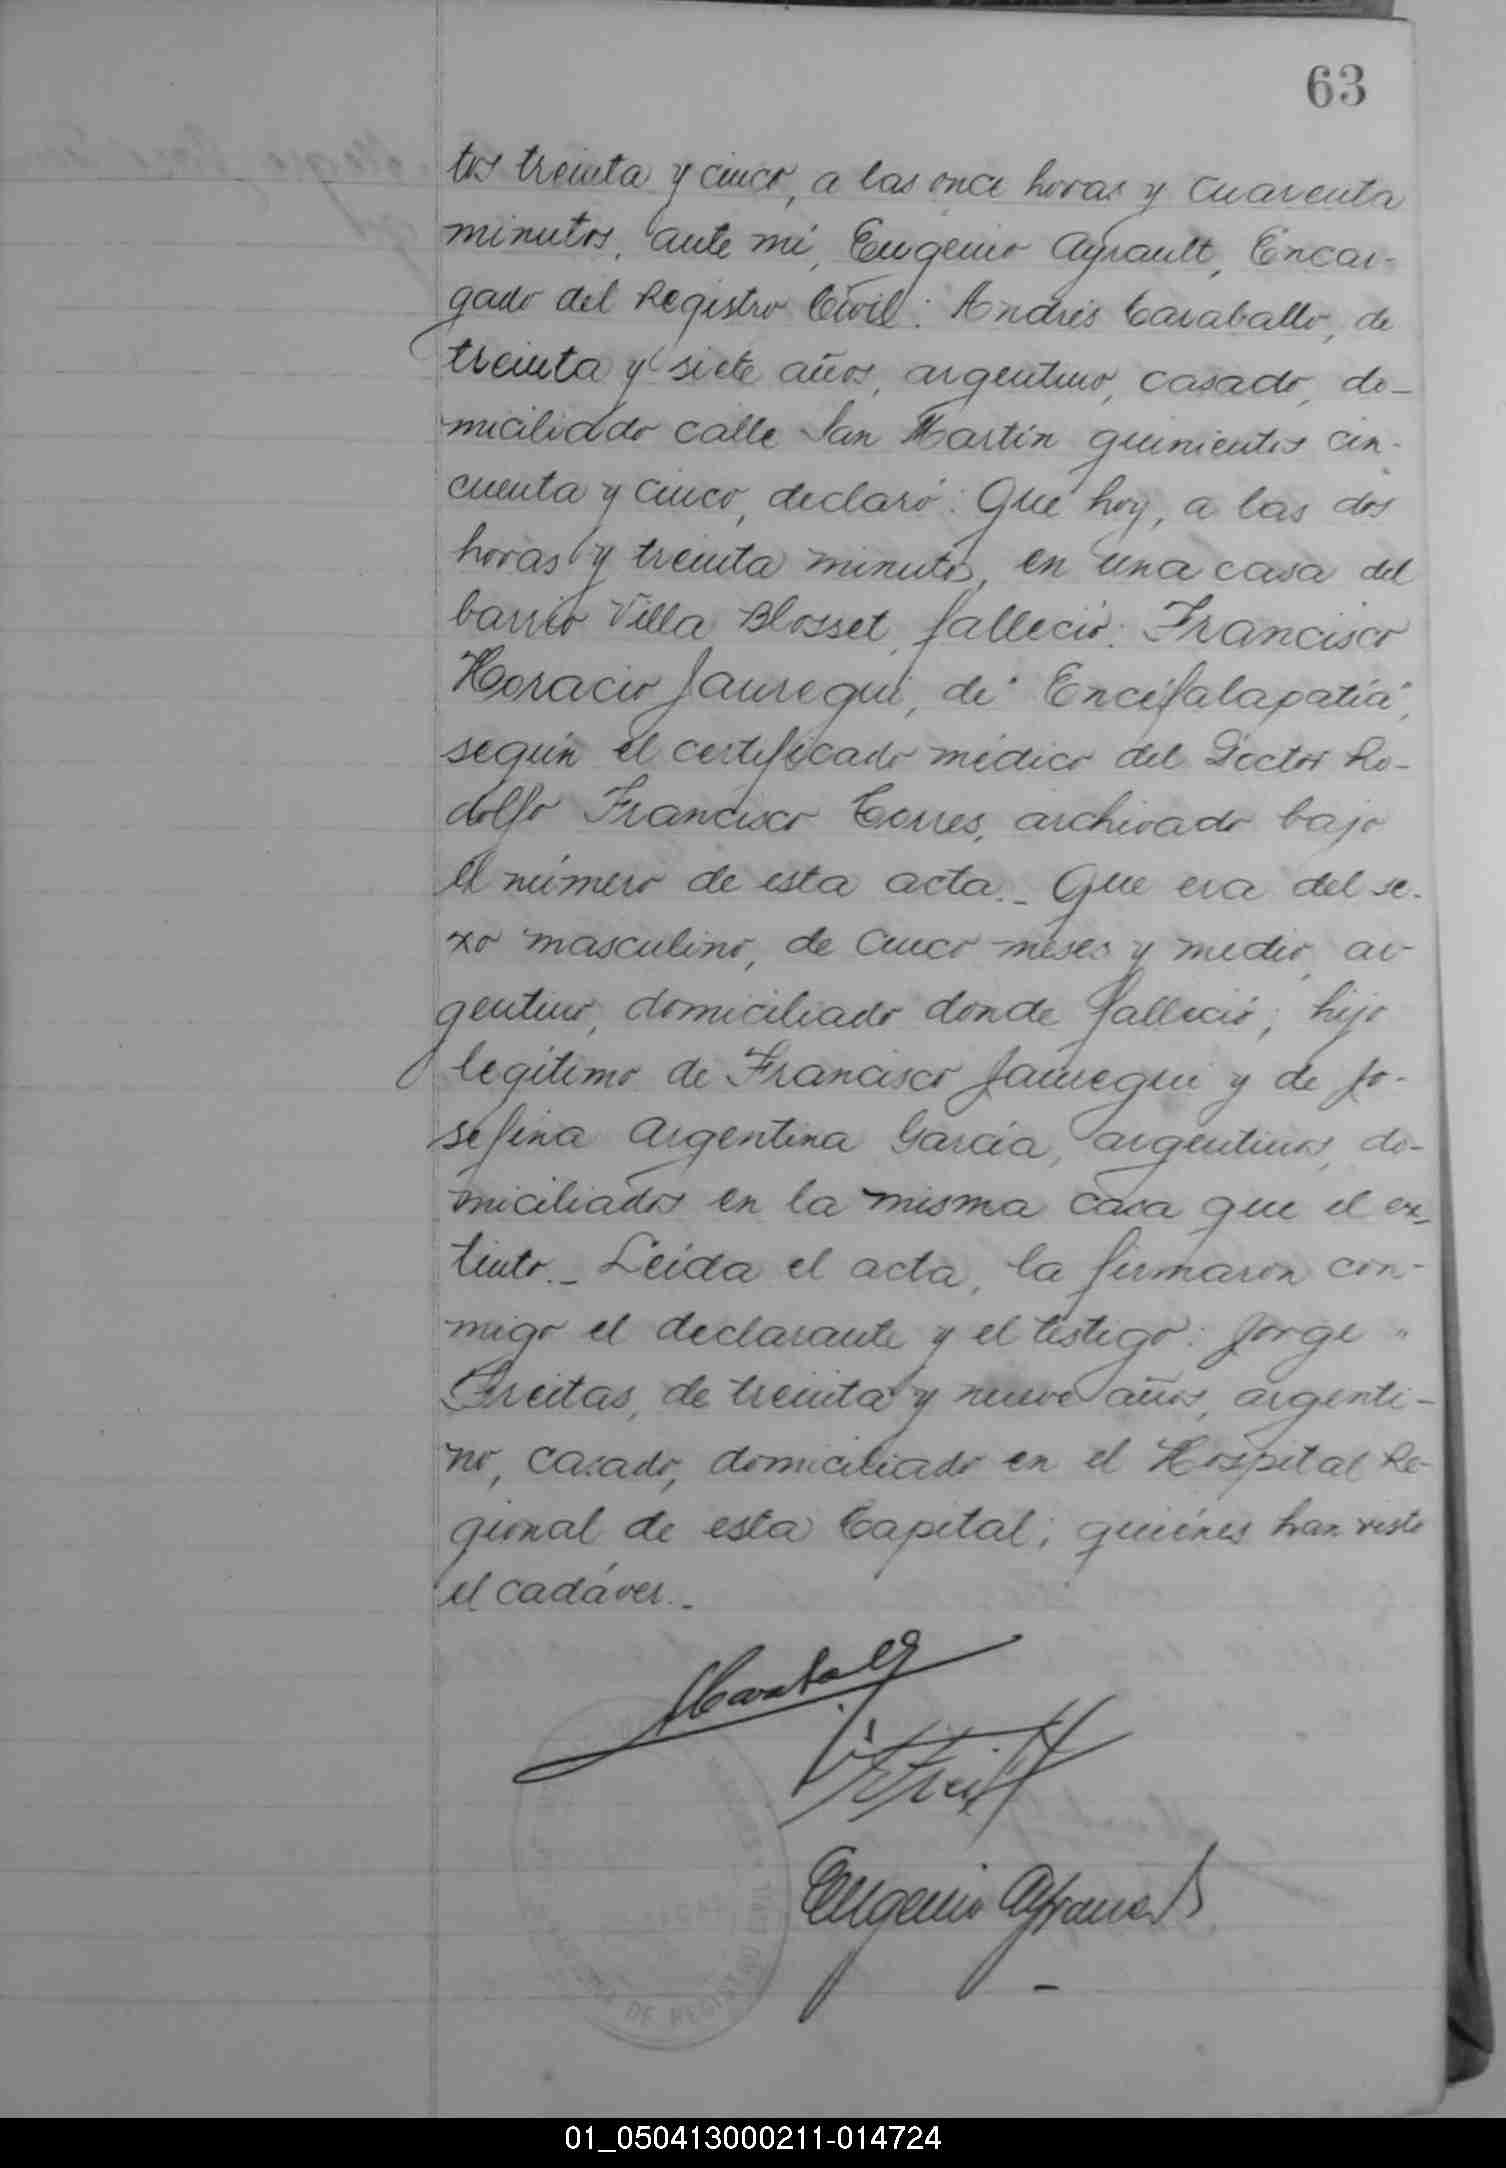 63
tos treinta y cinco, a las once horas y cuarenta
minutos, ante mí, Eugenio Ayrault, Encar-
gado del Registro Civil: Andrés Caraballo, de
treinta y siete años, argentino, casado, do-
miciliado calle San Martín quinientos cin-
cuenta y cinco, declaró: Que hoy, a las dos
horas y treinta minutos, en una casa del
barrio Villa Blosset, falleció: Francisco
Horacio Jauregui, de "Encéfalapatía",
según el certificado médico del Doctor Ro-
dolfo Francisco Torres, archivado bajo
el número de esta acta._ Que era del se-
xo masculino, de cinco meses y medio, ar-
gentino, domiciliado donde falleció; hijo
legítimo de Francisco Jauregui y de Jo-
sefina Argentina García, argentinos, do-
miciliados en la misma casa que el ex-
tinto._ Leída el acta, la firmaron con-
migo el declarante y el testigo: Jorge "
Freitas, de treinta y nueve años, argenti-
no, casado, domiciliado en el Hospital Re-
gional de esta Capital; quiénes han visto
el cadáver._
Eugenio Ayrault
DE REGISTRO CIVIL
01_050413000211-014724